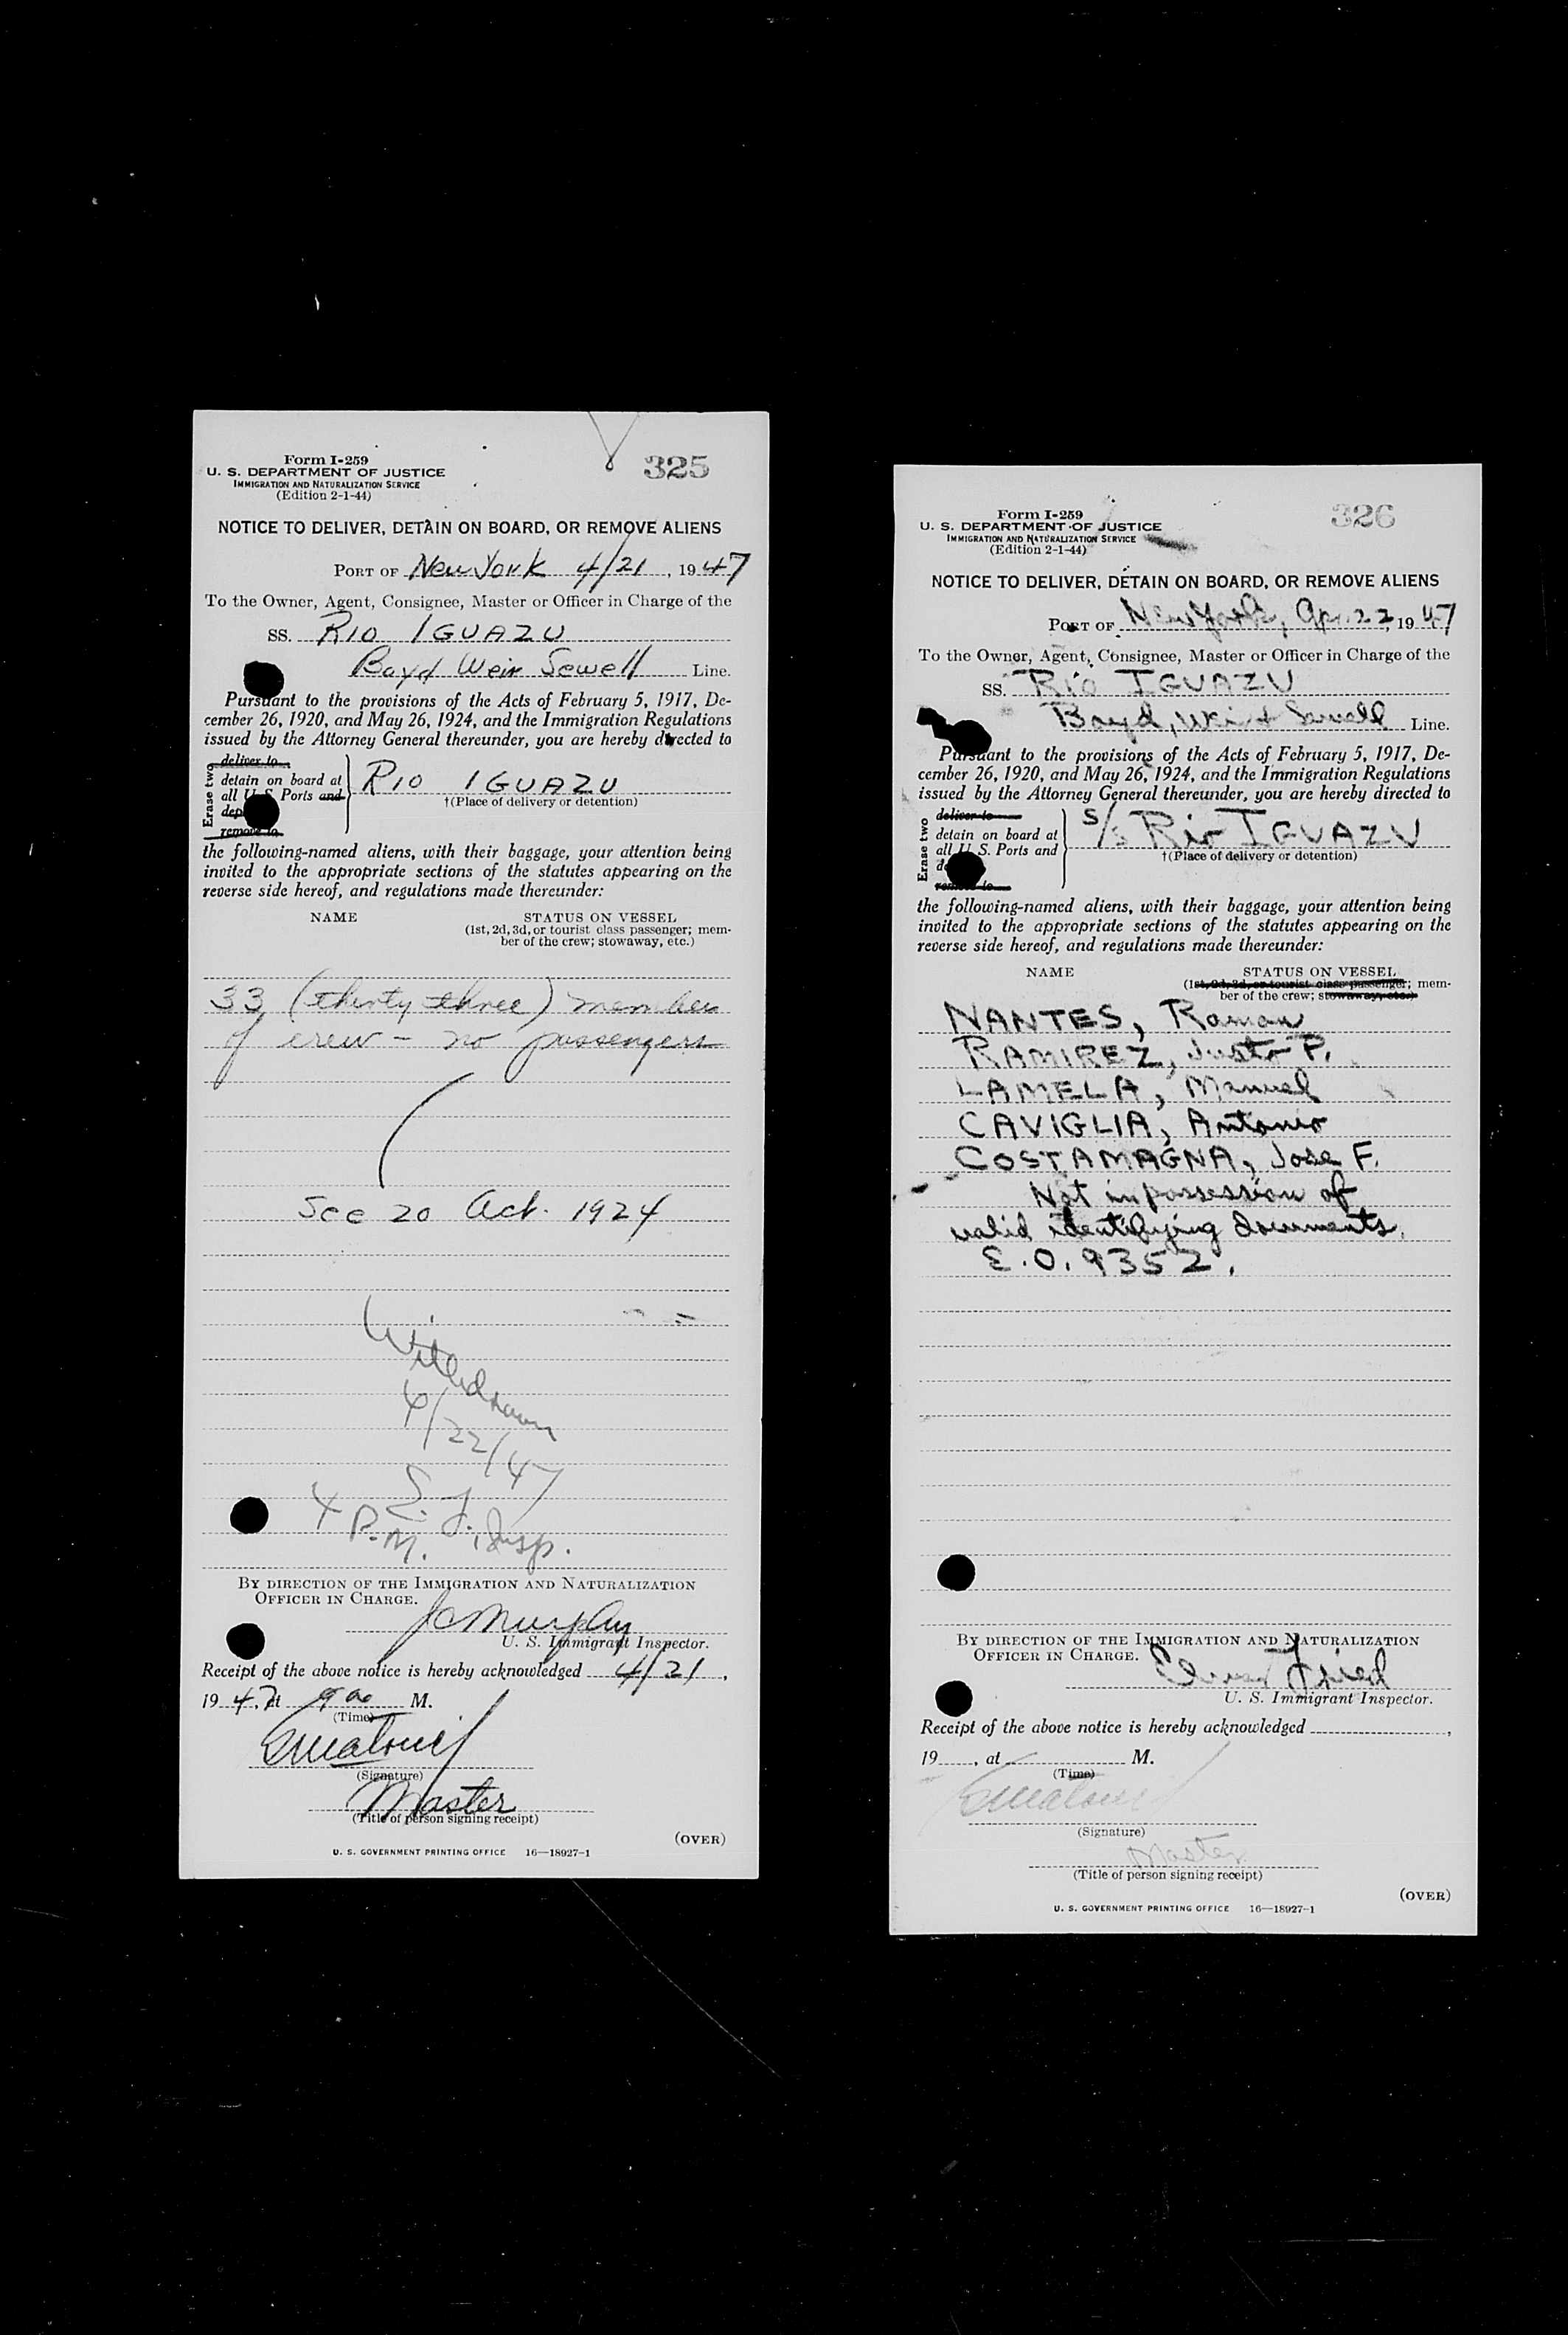 Form I-259
U. S. DEPARTMENT OF JUSTICE
IMMIGRATION AND NATURALIZATION SERVICE
(Edition 2-1-44)
325
NOTICE TO DELIVER, DETAIN ON BOARD, OR REMOVE ALIENS
PORT OF New York 4/21, 1947
To the Owner, Agent, Consignee, Master or Officer in Charge of the
SS. RIO IGUAZU
Boyd Weir Sewell Line.
Pursuant to the provisions of the Acts of February 5, 1917, De-
cember 26, 1920, and May 26, 1924, and the Immigration Regulations
issued by the Attorney General thereunder, you are hereby directed to
Erase two
deliver to
detain on board at
all U. S. Ports and
dep
remove to
RIO IGUAZU
†(Place of delivery or detention)
the following-named aliens, with their baggage, your attention being
invited to the appropriate sections of the statutes appearing on the
reverse side hereof, and regulations made thereunder:
NAME STATUS ON VESSEL
(1st, 2d, 3d, or tourist class passenger; mem-
ber of the crew; stowaway, etc.)
33 (thirty three) members
of crew - no passengers
Sec 20 Act. 1924
Withdrawn
4/22/47
4 P.M.
Insp.
BY DIRECTION OF THE IMMIGRATION AND NATURALIZATION
OFFICER IN CHARGE.
JC Murphy
U. S. Immigrant Inspector.
Receipt of the above notice is hereby acknowledged 4/21,
1947, at 9 00 M.
(Time)
(Signature)
Master
(Title of person signing receipt)
(OVER)
U. S. GOVERNMENT PRINTING OFFICE 16—18927-1
Form I-259
U. S. DEPARTMENT OF JUSTICE
IMMIGRATION AND NATURALIZATION SERVICE
(Edition 2-1-44)
326
NOTICE TO DELIVER, DETAIN ON BOARD, OR REMOVE ALIENS
PORT OF New York, Apr. 22, 1947
To the Owner, Agent, Consignee, Master or Officer in Charge of the
SS. Rio IGUAZU
Boyd, Weir & Sewell Line.
Pursuant to the provisions of the Acts of February 5, 1917, De-
cember 26, 1920, and May 26, 1924, and the Immigration Regulations
issued by the Attorney General thereunder, you are hereby directed to
Erase two
deliver to
detain on board at
all U. S. Ports and
de
remove to
S/S Rio IGUAZU
†(Place of delivery or detention)
the following-named aliens, with their baggage, your attention being
invited to the appropriate sections of the statutes appearing on the
reverse side hereof, and regulations made thereunder:
NAME STATUS ON VESSEL
(1st, 2d, 3d, or tourist class passenger; mem-
ber of the crew; stowaway, etc.)
NANTES, Ramon
RAMIREZ, Justo P.
LAMELA, Manuel
CAVIGLIA, Antonio
COSTAMAGNA, Jose F.
Not in possession of
valid identifying documents.
E.O. 9352.
BY DIRECTION OF THE IMMIGRATION AND NATURALIZATION
OFFICER IN CHARGE.
Fried
U. S. Immigrant Inspector.
Receipt of the above notice is hereby acknowledged ,
19 , at M.
(Time)
(Signature)
Master
(Title of person signing receipt)
(OVER)
U. S. GOVERNMENT PRINTING OFFICE 16—18927-1